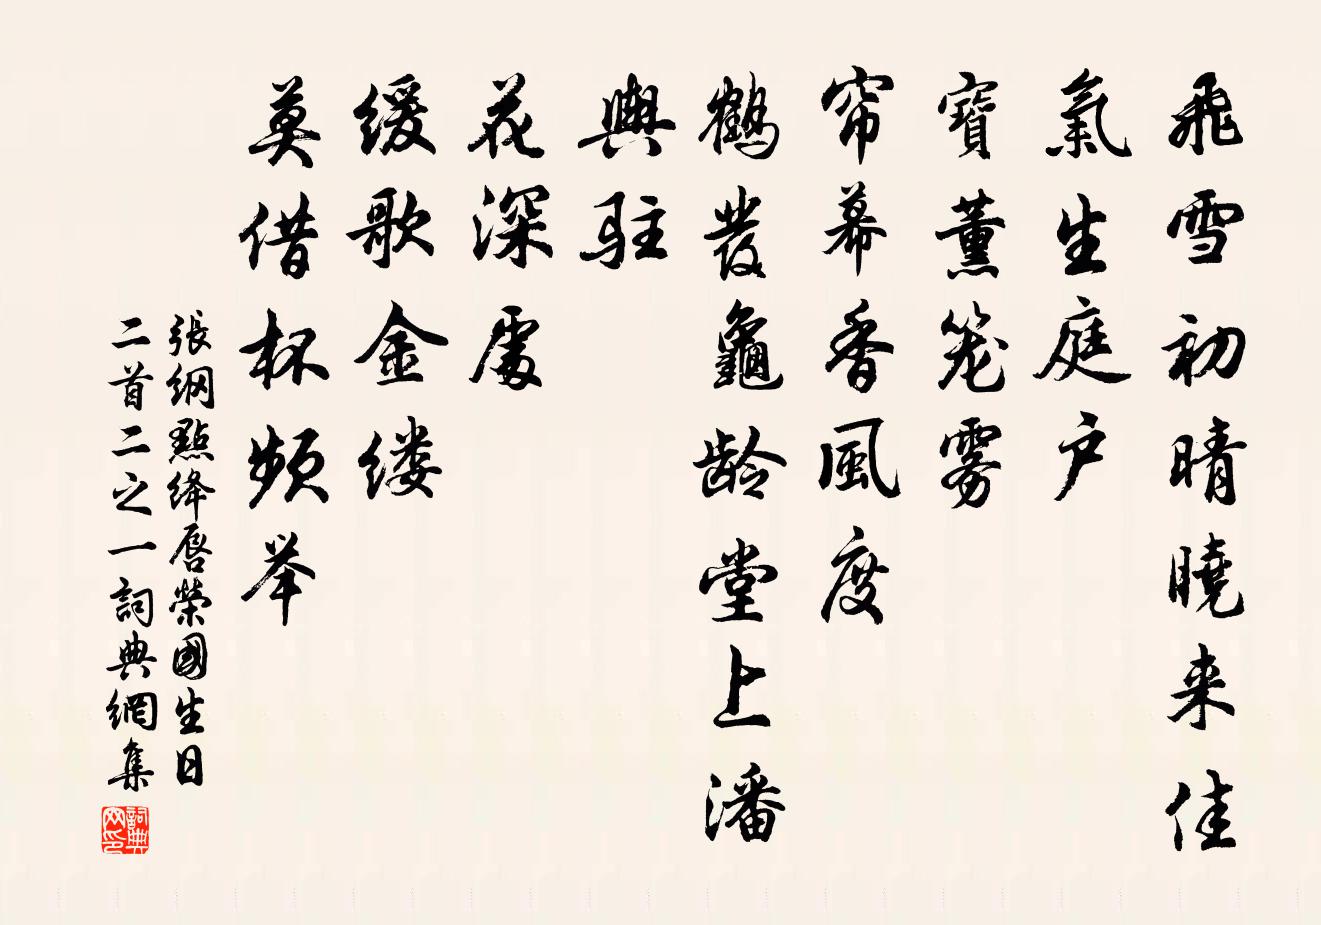 飛雪初晴曉来佳
氣生庭户
寶薰笼雾
帘幕香風度
鶴發龜龄堂上潘
輿駐
花深處
缓歌金缕
莫借杯频举
張纲點绛唇榮國生日
二首二之一詞典網集
詞典
网印